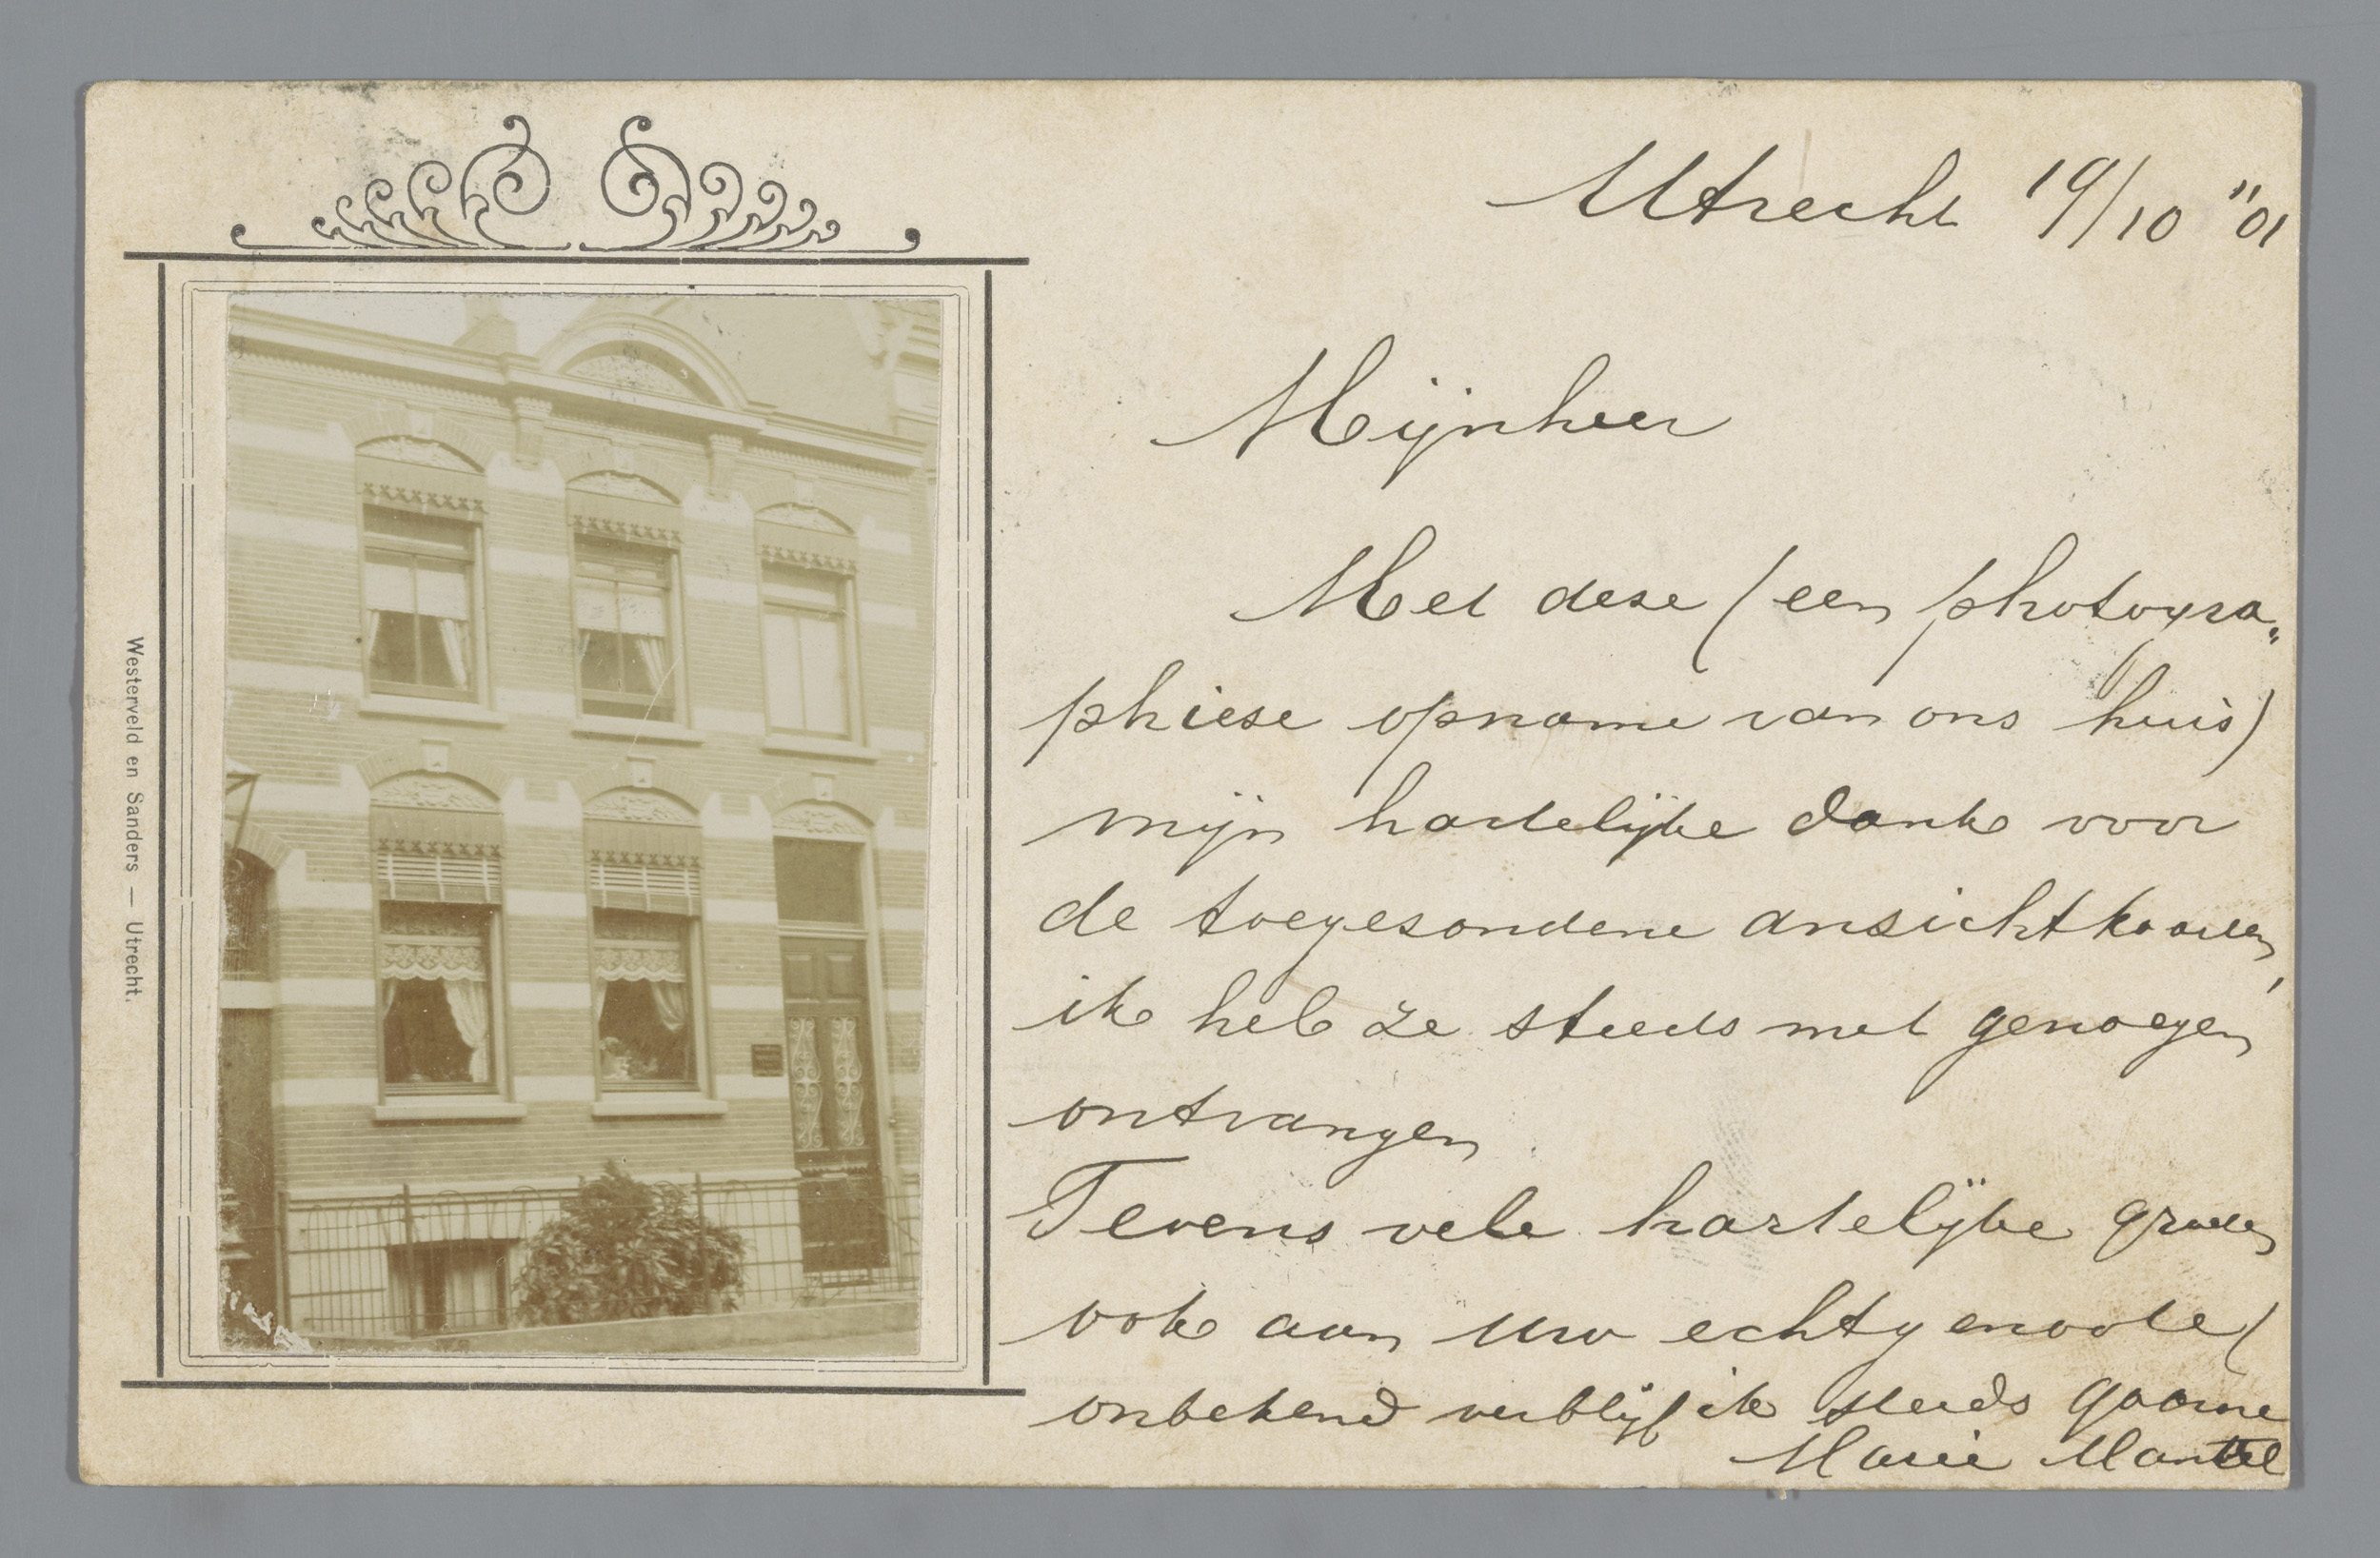 Utrecht 19/10 "01
Mijnheer
Met deze (een photogra„
phiese opname van ons huis)
mijn hartelijke dank voor
de toegezondene ansichtkaarten,
ik heb ze steeds met genoegen
ontvangen
Tevens vele hartelijke groeten
ook aan uw echtgenoote (
onbekend verblijf ik steeds gaarne
Marie Mantel
Westerveld en Sanders — Utrecht.